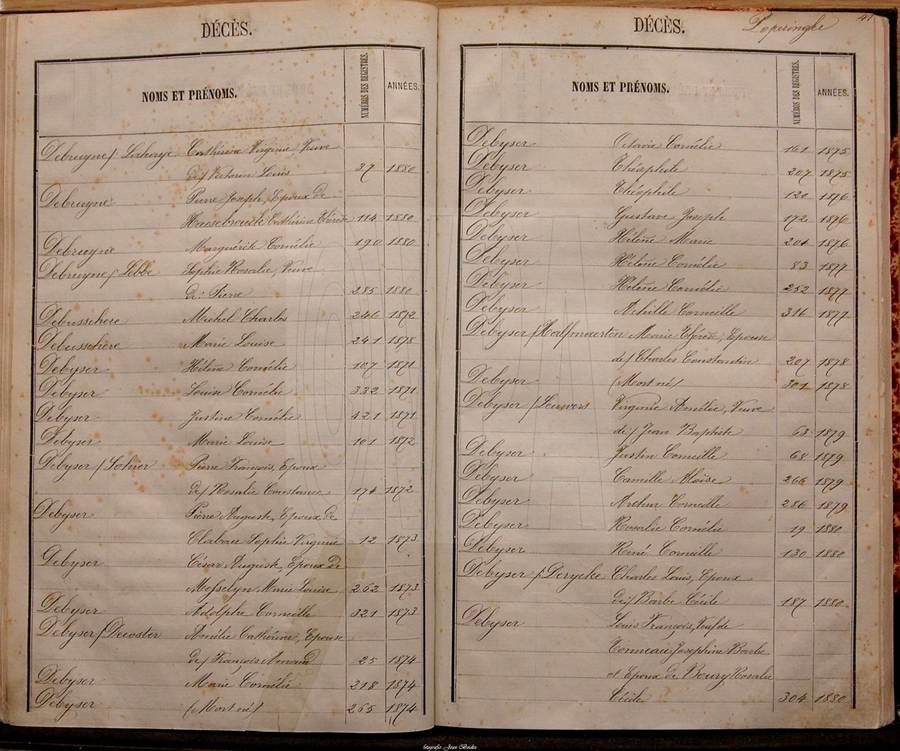 DÉCÈS.
NOMS ET PRÉNOMS.
NUMÉROS DES REGISTRES.
ANNÉES.
Debruyne / Lahaye Catherine Virginie, Veuve
de / Victorin Louis 37 1880
Debruyne Pierre Joseph, Epoux de
Catherine Thérèse 114 1880
Debruyne Marguérite Cornélie 190 1880
Debruyne / Lebbe Sophie Rosalie, Veuve
de: Pierre 285 1880
Debusschere Michel Charles 246 1872
Debusschere Marie Louise 241 1878
Debyser Hélène Cornélie 107 1871
Debyser Louise Cornélie 332 1871
Debyser Justine Cornélie 421 1871
Debyser Marie Louise 101 1872
Debyser / Pierre François, Epoux
de / Rosalie Constance 174 1872
Debyser Pierre Auguste, Epoux de
Clabau Sophie Virginie 12 1873
Debyser César Auguste, Epoux de
Mosselyn Marie Louise 262 1873
Debyser Adolphe Corneille 321 1873
Debyser / Decoster Amélie Cathérine, Epouse
de / François Amand 25 1874
Debyser Marie Cornélie 218 1874
Debyser (Mort né) 265 1874
DÉCÈS.
Poperinghe
41
NOMS ET PRÉNOMS.
NUMÉROS DES REGISTRES.
ANNÉES.
Debyser Octavie Cornélie 161 1875
Debyser Théophile 207 1875
Debyser Théophile 120 1876
Debyser Gustave Joseph 172 1876
Debyser Hélène Marie 204 1876
Debyser Hélène Cornélie 83 1877
Debyser Hélène Cornélie 252 1877
Debyser Achille Corneille 316 1877
Debyser / Halfmaerten Marie Thérèse, Epouse
de / Charles Constantin 207 1878
Debyser (Mort né) 301 1878
Debyser / Leuwers Virginie Amélie, Veuve
de / Jean Baptiste 63 1879
Debyser Justin Corneille 68 1879
Debyser Camille Aloïse 266 1879
Debyser Arthur Corneille 286 1879
Debyser Rosalie Cornélie 19 1880
Debyser René Corneille 130 1880
Debyser / Derycke Charles Louis, Epoux
de / Barbe Cécile 187 1880
Debyser Louis François, Veuf de
Tonneau Josephine Barbe
et Epoux de Boury Rosalie
Cécile 304 1880
fotografie Jean Beckx